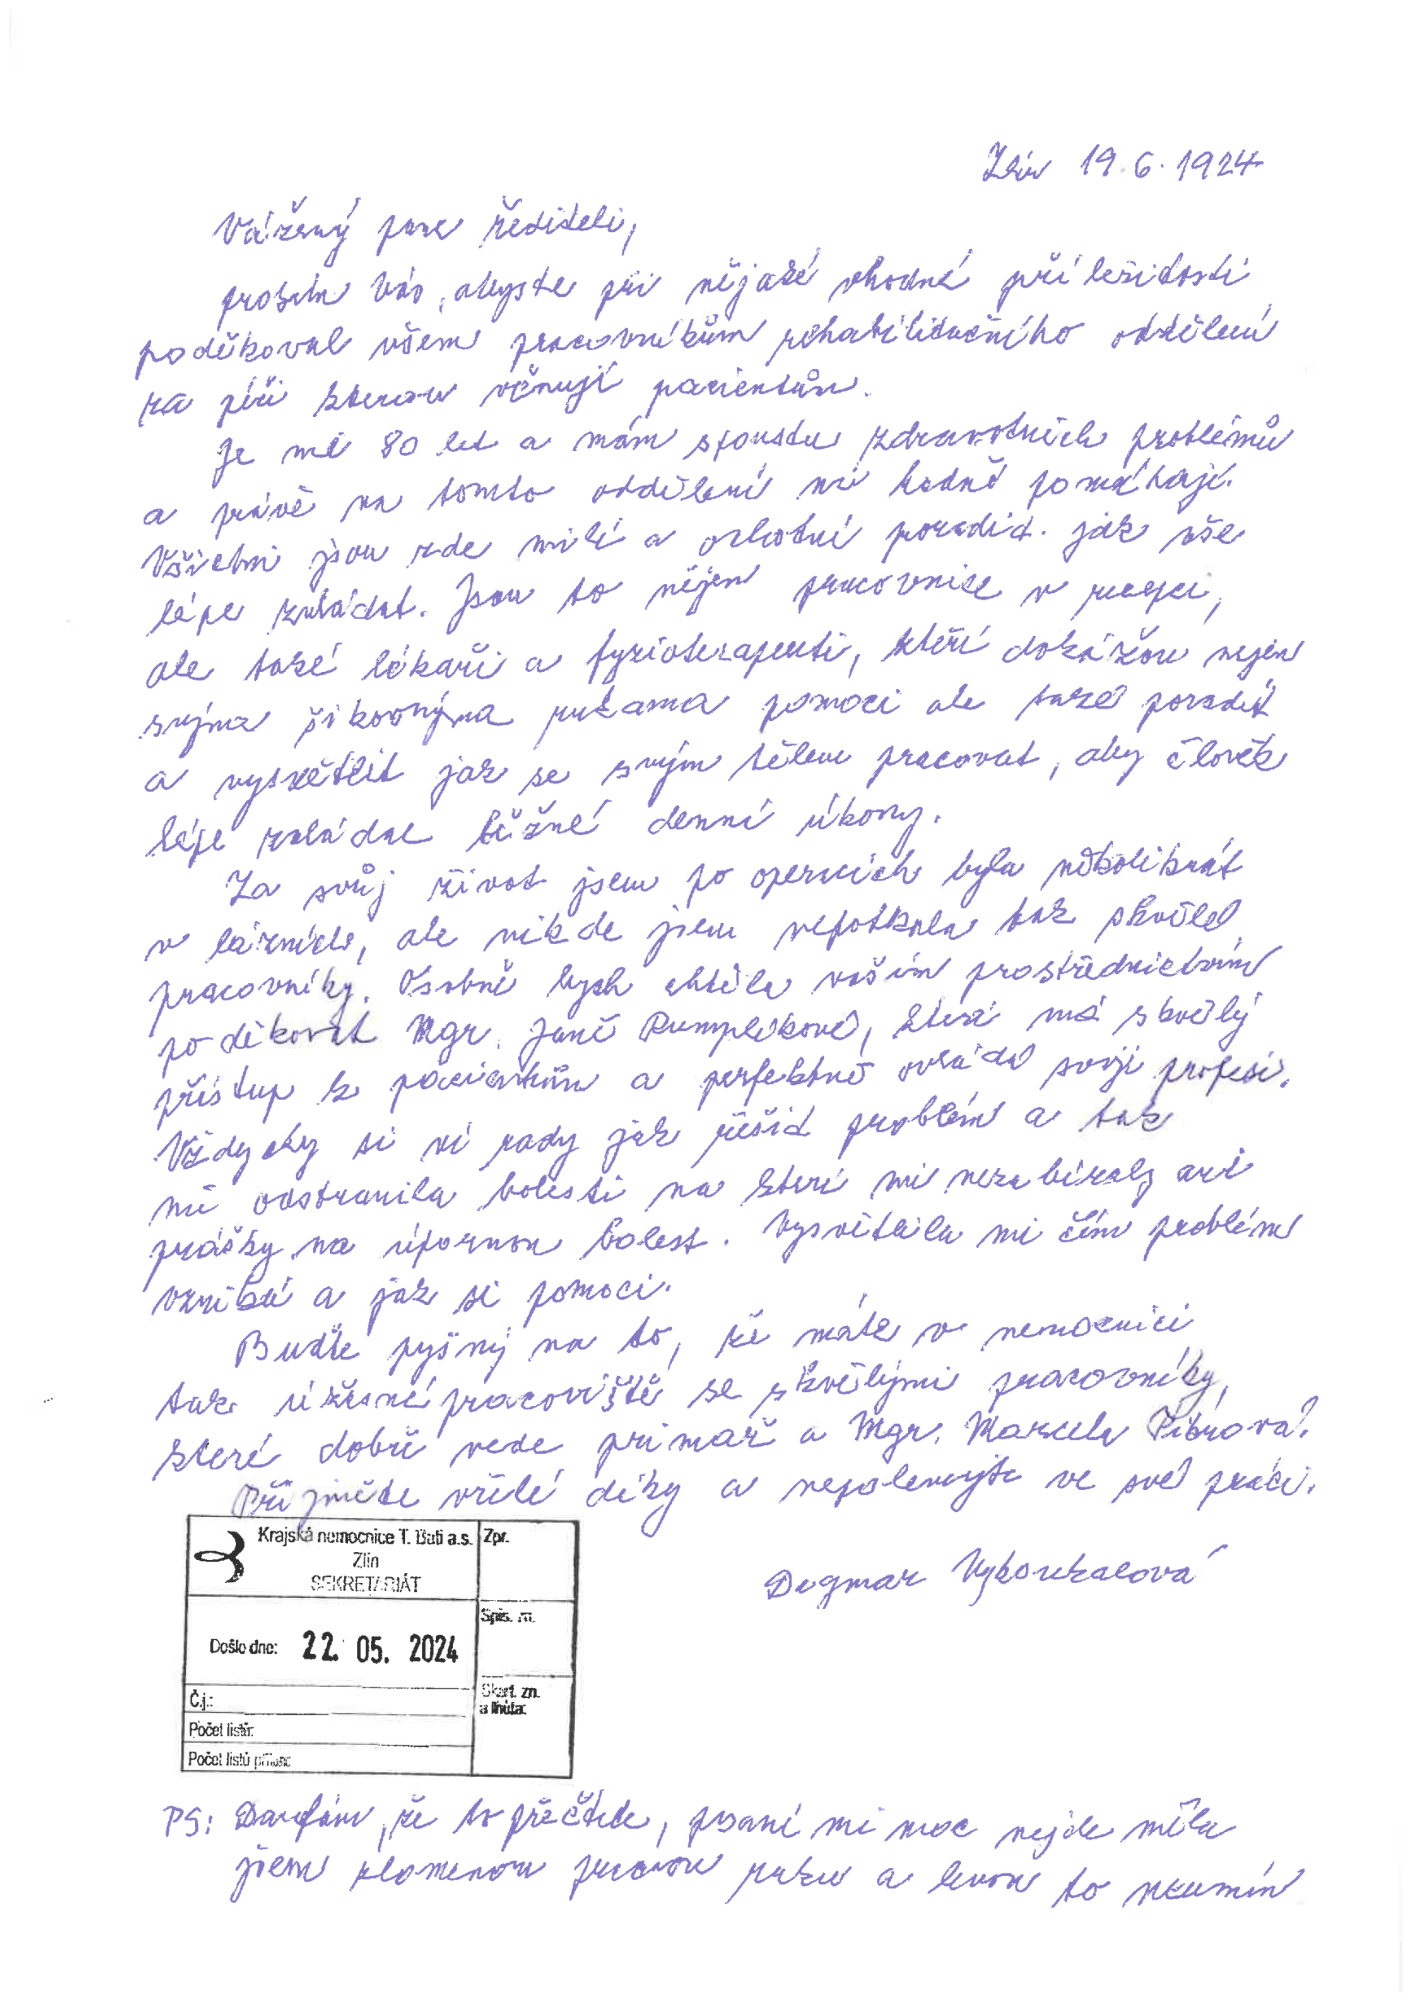 Zlín 19.6.1924
Vážený pane řediteli,
prosím Vás, abyste při nějaké vhodné příležitosti
poděkoval všem pracovníkům rehabilitačního oddělení
za péči kterou věnují pacientům.
Je mě 80 let a mám spoustu zdravotních problémů
a právě na tomto oddělení mi hodně pomáhají.
Všichni jsou zde milí a ochotni poradit. jak vše
lépe zvládat. Jsou to nejen pracovnice v recepci,
ale také lékaři a fyzioterapeuti, kteří dokážou nejen
svýma šikovnýma rukama pomoci ale také poradit
a vysvětlit jak se svým tělem pracovat, aby člověk
lépe zvládal běžné denní úkony.
Za svůj život jsem po operacích byla několikrát
v lázních, ale nikde jsem nepotkala tak skvělé
pracovníky. Osobně bych chtěla vaším prostřednictvím
poděkovat Mgr. Janě Rumplíkové, která má skvělý
přístup k pacientům a perfektně ovládá svoji profesi.
Vždycky si ví rady jak řešit problém a tak
mi odstranila bolesti na které mi nezabíraly ani
prášky na úpornou bolest. Vysvětlila mi čím problém
vzniká a jak si pomoci.
Buďte pyšný na to, že máte v nemocnici
tak úžasné pracoviště se skvělými pracovníky,
které dobře vede primař a Mgr. Marcela
Přijměte vřelé díky a nepolevujte ve své práci.
Dagmar Vykoukalová
Krajská nemocnice T. Bati a.s.
Zlín
SEKRETARIÁT
Zpr.
Došlo dne: 22. 05. 2024
Spis. zn.
Č.j.:
Skart. zn.
a lhůta:
Počet listů:
Počet listů příloh:
PS: Doufám, že to přečtete, psaní mi moc nejde měla
jsem zlomenou pravou ruku a levou to neumím